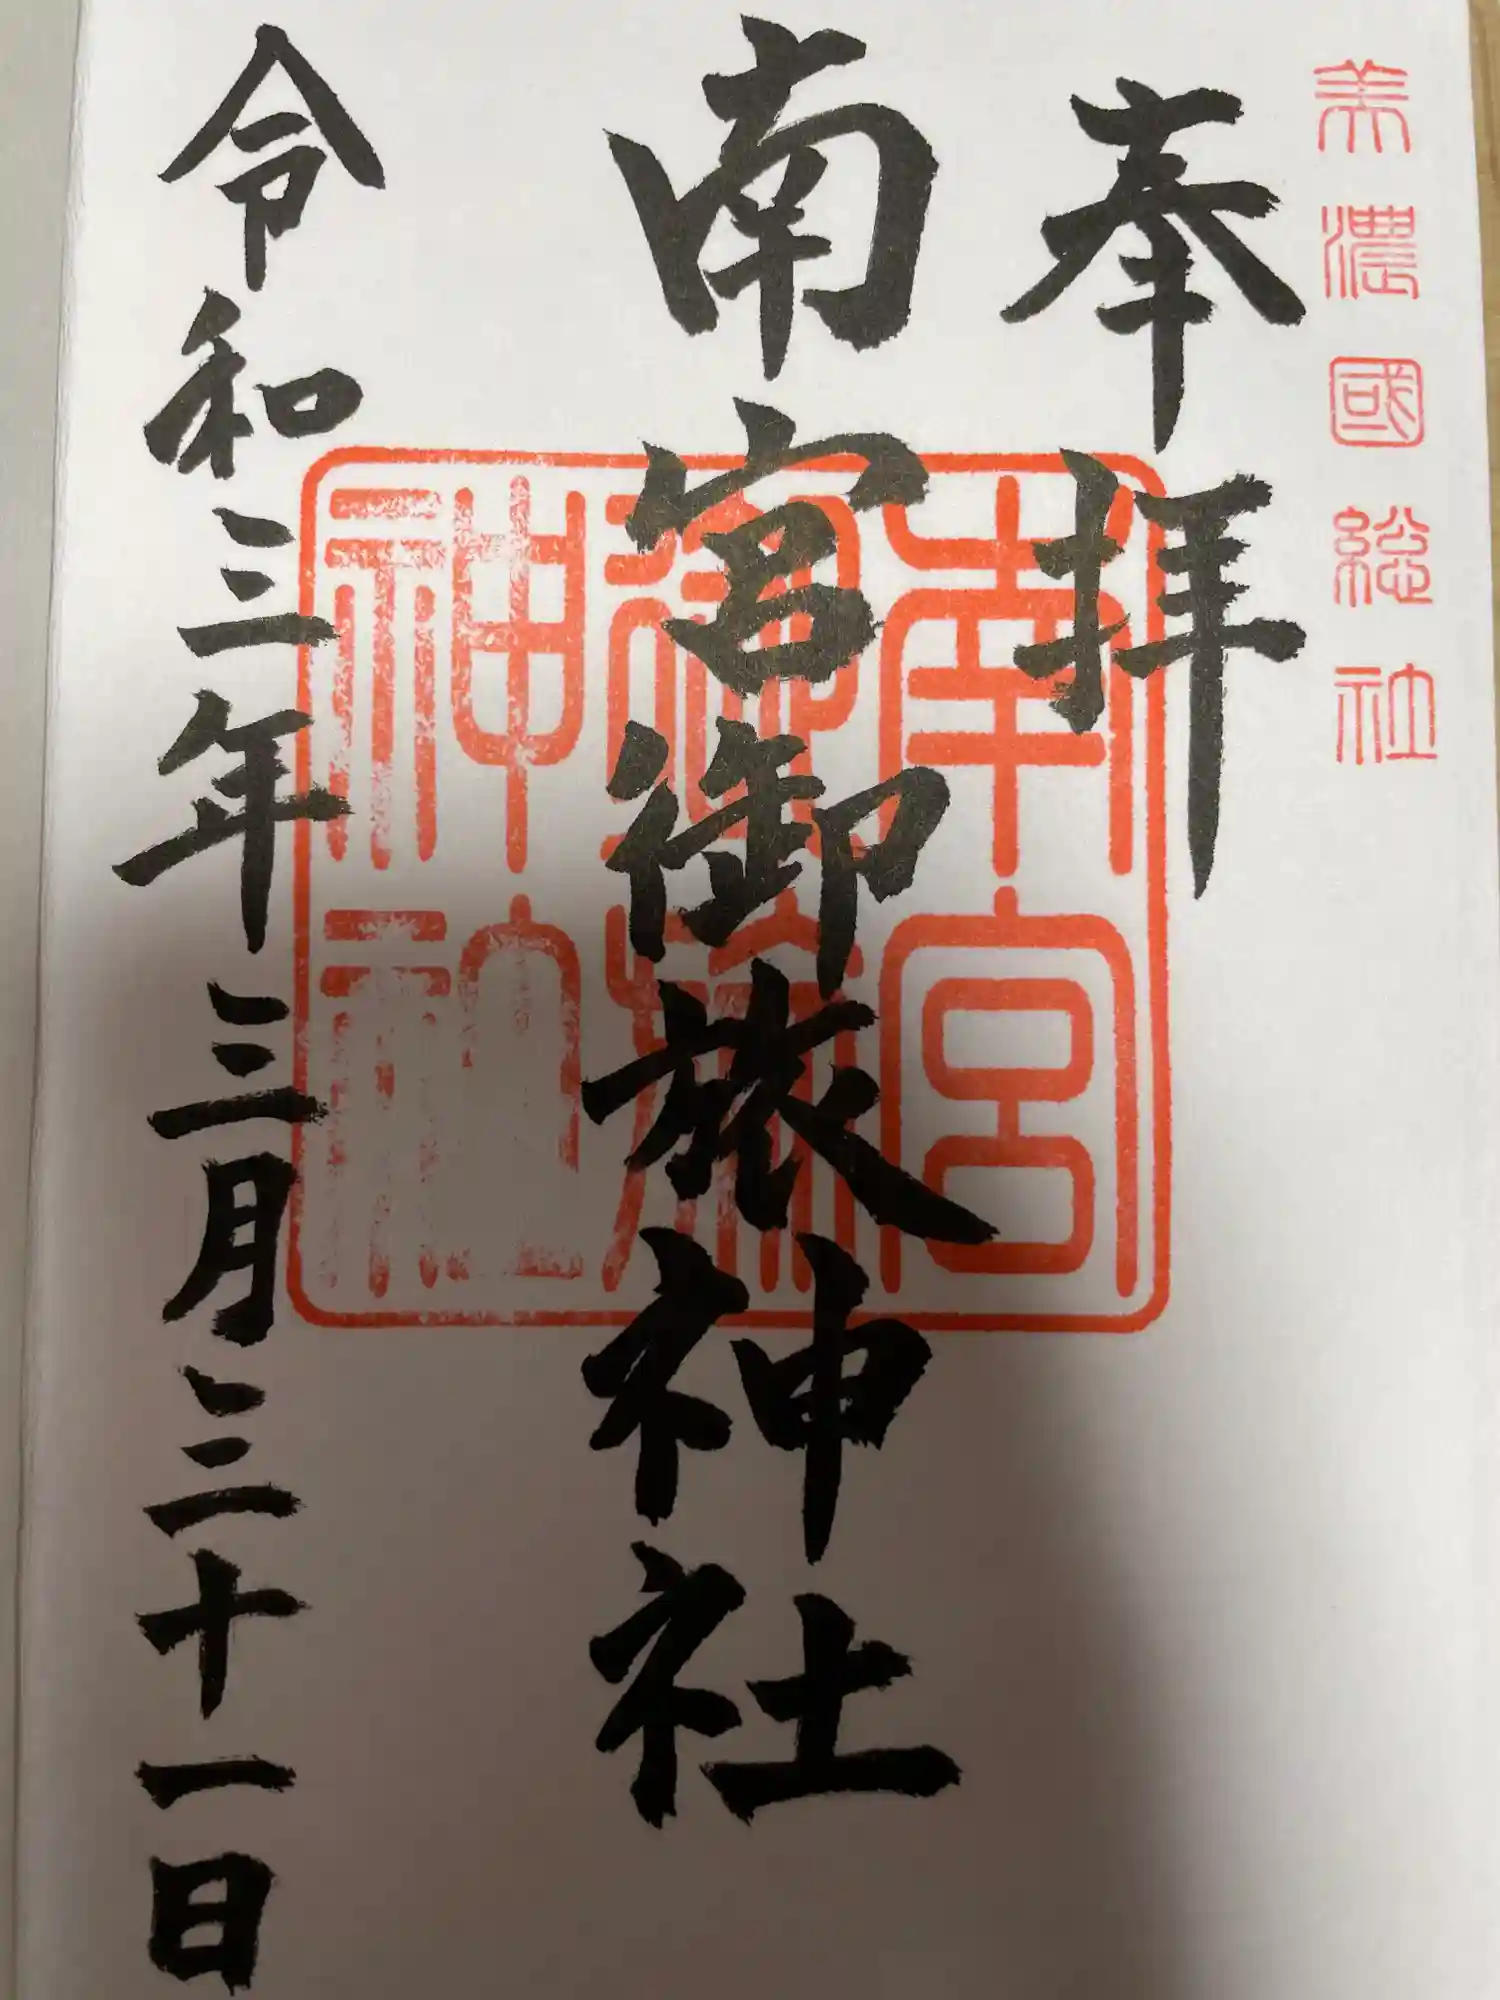 美濃國総社
奉拝
南宮御旅神社
南宮
御旅
神社
令和三年三月三十一日